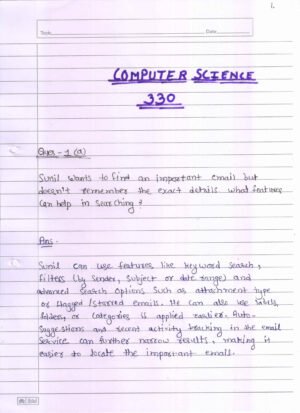 1.
Topic
Date
COMPUTER SCIENCE
330
Ques - 1 (a)
Sunil wants to find an important email but
doesn't remember the exact details what features
can help in searching?
Ans.
Sunil can use features like keyword search,
filters (by sender, subject or date range) and
advanced search options such as attachment type
or flagged/starred emails. He can also use labels,
folders, or categories is applied earlier. Auto-
suggestions and recent activity tracking in the email
service can further narrow results, making it
easier to locate the important email.